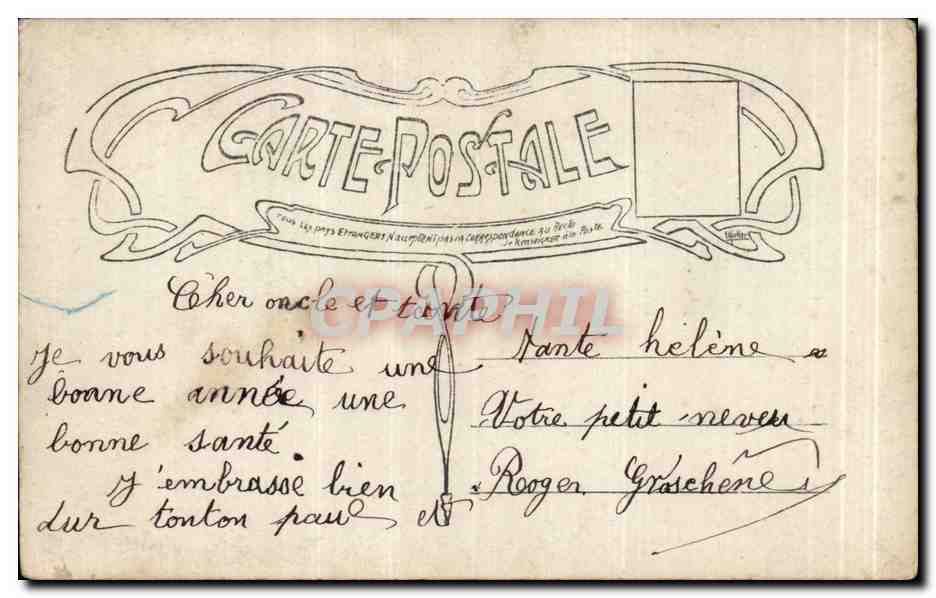 CARTE POSTALE
Tous les pays Etrangers N'acceptent pas la Correspondance au Recto
se Renseigner à la Poste
CPAPHIL
Cher oncle et tante
Je vous souhaite une
bonne année une
bonne santé
J'embrasse bien
dur tonton paul et
tante hélène
Votre petit neveu
Roger Groschêne